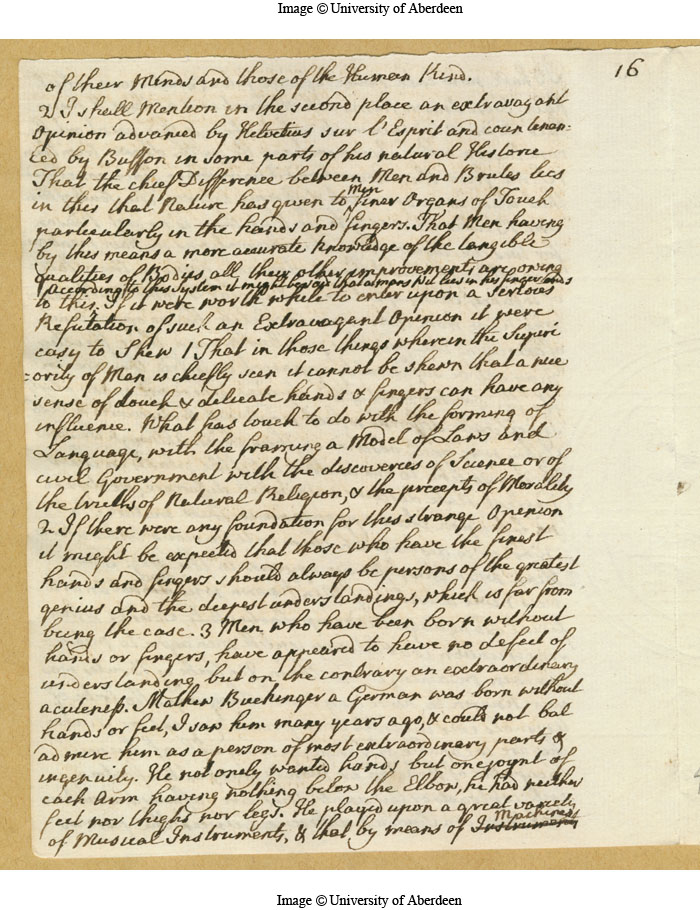 Image © University of Aberdeen
16
of their Minds and those of the Human Kind.
2 I shall Mention in the second place an extravagant
Opinion advanced by Helvetius sur l'Esprit and countenan-
ced by Buffon in some parts of his natural Historie
That the chief Difference between Men and Brutes lies
in this that Nature has given to Men finer Organs of Touch
particularly in the hands and fingers. That Men having
by this means a more accurate knowledge of the tangible
qualities of Bodies, all their other improvements are owing
according to this System it might be said that a mans Wit lies in his finger ends
to this. If it were worth while to enter upon a serious
Refutation of such an Extravagant Opinion it were
easy to Shew 1 That in those things wherein the Superi
-ority of Man is chiefly seen it cannot be shewn that a nice
sense of touch & delicate hands & fingers can have any
influence. What has touch to do with the forming of
Language, with the framing a Model of Laws and
civil Government with the discoveries of Science or of
the truths of Natural Religion, & the precepts of Morality
2 If there were any foundation for this strange Opinion
it might be expected that those who have the finest
hands and fingers should always be persons of the greatest
genius and the deepest understandings, which is far from
being the case. 3 Men who have been born without
hands or fingers, have appeared to have no defect of
understanding but on the contrary an extraordinary
acuteness. Mathew Buchinger a German was born without
hands or feet, I saw him many years ago, & could not but
admire him as a person of most extraordinary parts &
ingenuity. He not onely wanted hands but one joynt of
each Arm having nothing below the Elbow, he had neither
feet nor thighs nor legs. He played upon a great variety
of Musical Instruments, & that by means of Instruments Machines
Image © University of Aberdeen